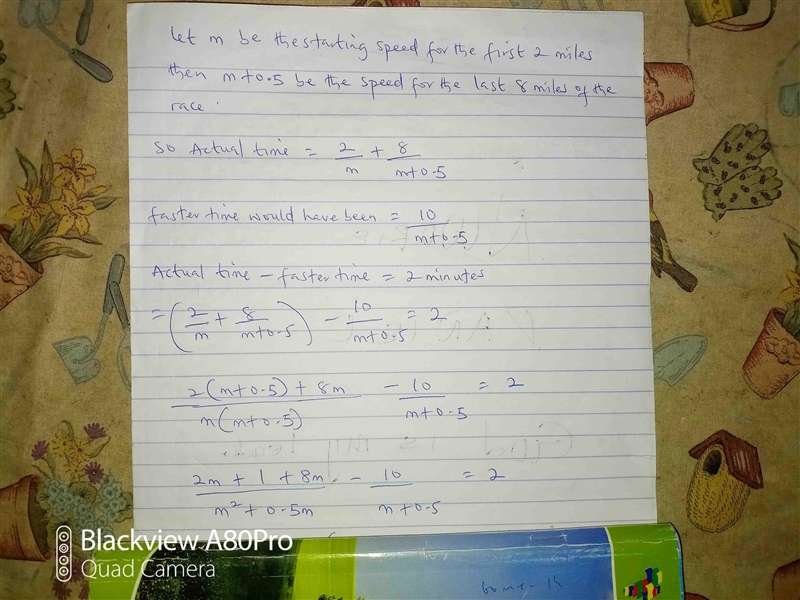 let m be the starting speed for the first 2 miles
then m+0.5 be the speed for the last 8 miles of the
race.
so Actual time = 2/m + 8/m+0.5
faster time would have been = 10/m+0.5
Actual time - faster time = 2 minutes
= (2/m + 8/m+0.5) - 10/m+0.5 = 2
2(m+0.5) + 8m/m(m+0.5) - 10/m+0.5 = 2
2m + 1 + 8m/m² + 0.5m - 10/m+0.5 = 2
Blackview A80Pro
Quad Camera